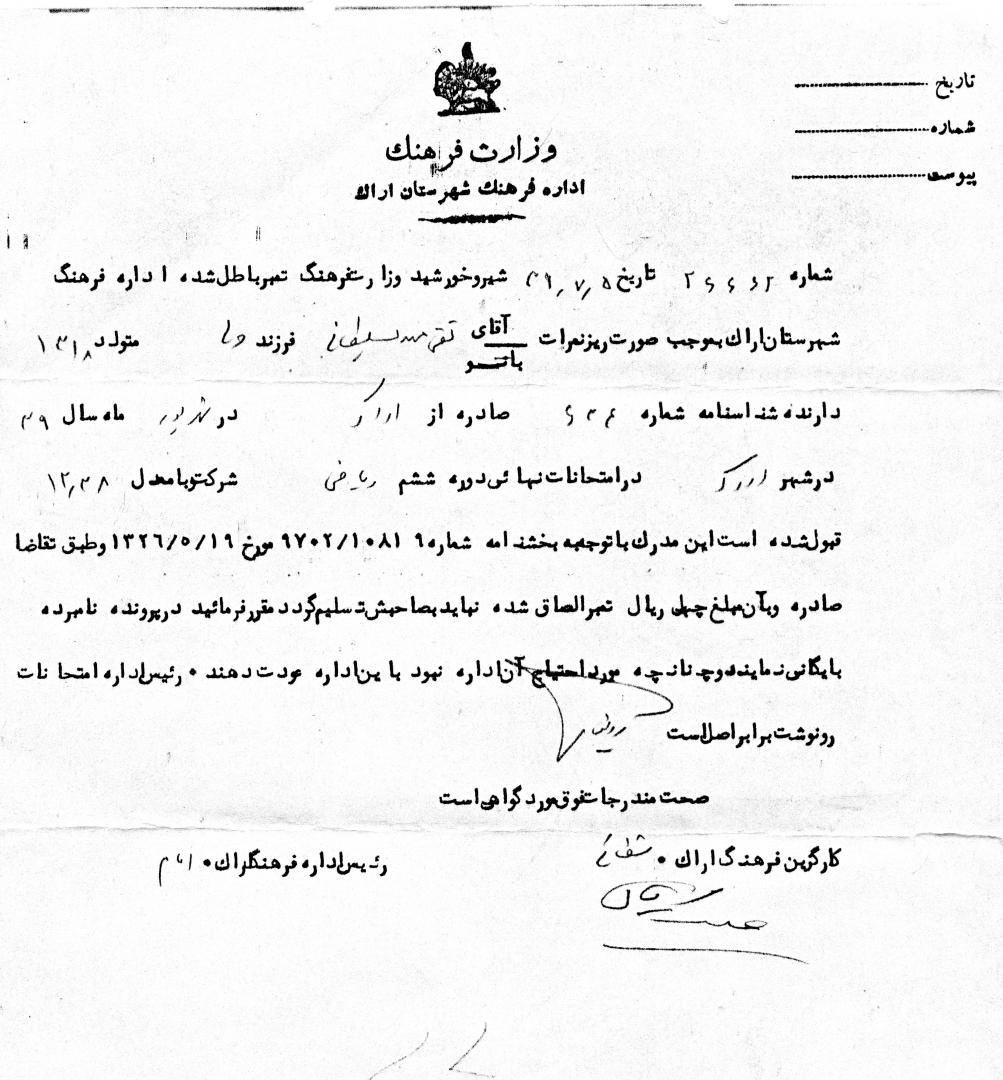 تاریخ
شماره
پیوست
وزارت فرهنك
اداره فرهنك شهرستان اراك
شماره ۲۶۶۶۲ تاریخ ۳۹٫۷٫۵ شیروخورشید وزارت فرهنگ تمبر باطل شده اداره فرهنگ
شهرستان اراك بموجب صورت ریز نمرات آقای بانو فرزند متولد ۱۳۱۸
دارنده شناسنامه شماره ۶۳۶ صادره از اراک در شهریور ماه سال ۳۹
در شهر اراک در امتحانات نهائی دوره ششم ریاضی شرکت و با معدل ۱۲٫۳۸
قبول شده است این مدرك با توجه به بخشنامه شماره ۹۷۰۲/۱۰۸۱۹ مورخ ۱۳۲۶/۵/۱۹ وطبق تقاضا
صادره وبآن مبلغ چهل ریال تمبر الصاق شده نباید بصاحبش تسلیم گردد مقرر فرمائید در پرونده نامبرده
بایگانی نمایند و چنانچه مورد احتیاج آن اداره نبود باین اداره عودت دهند • رئیس اداره امتحانات
رونوشت برابر اصل است
صحت مندرجات فوق مورد گواهی است
کارگزین فرهنگ اراك •
رئیس اداره فرهنگ اراك •